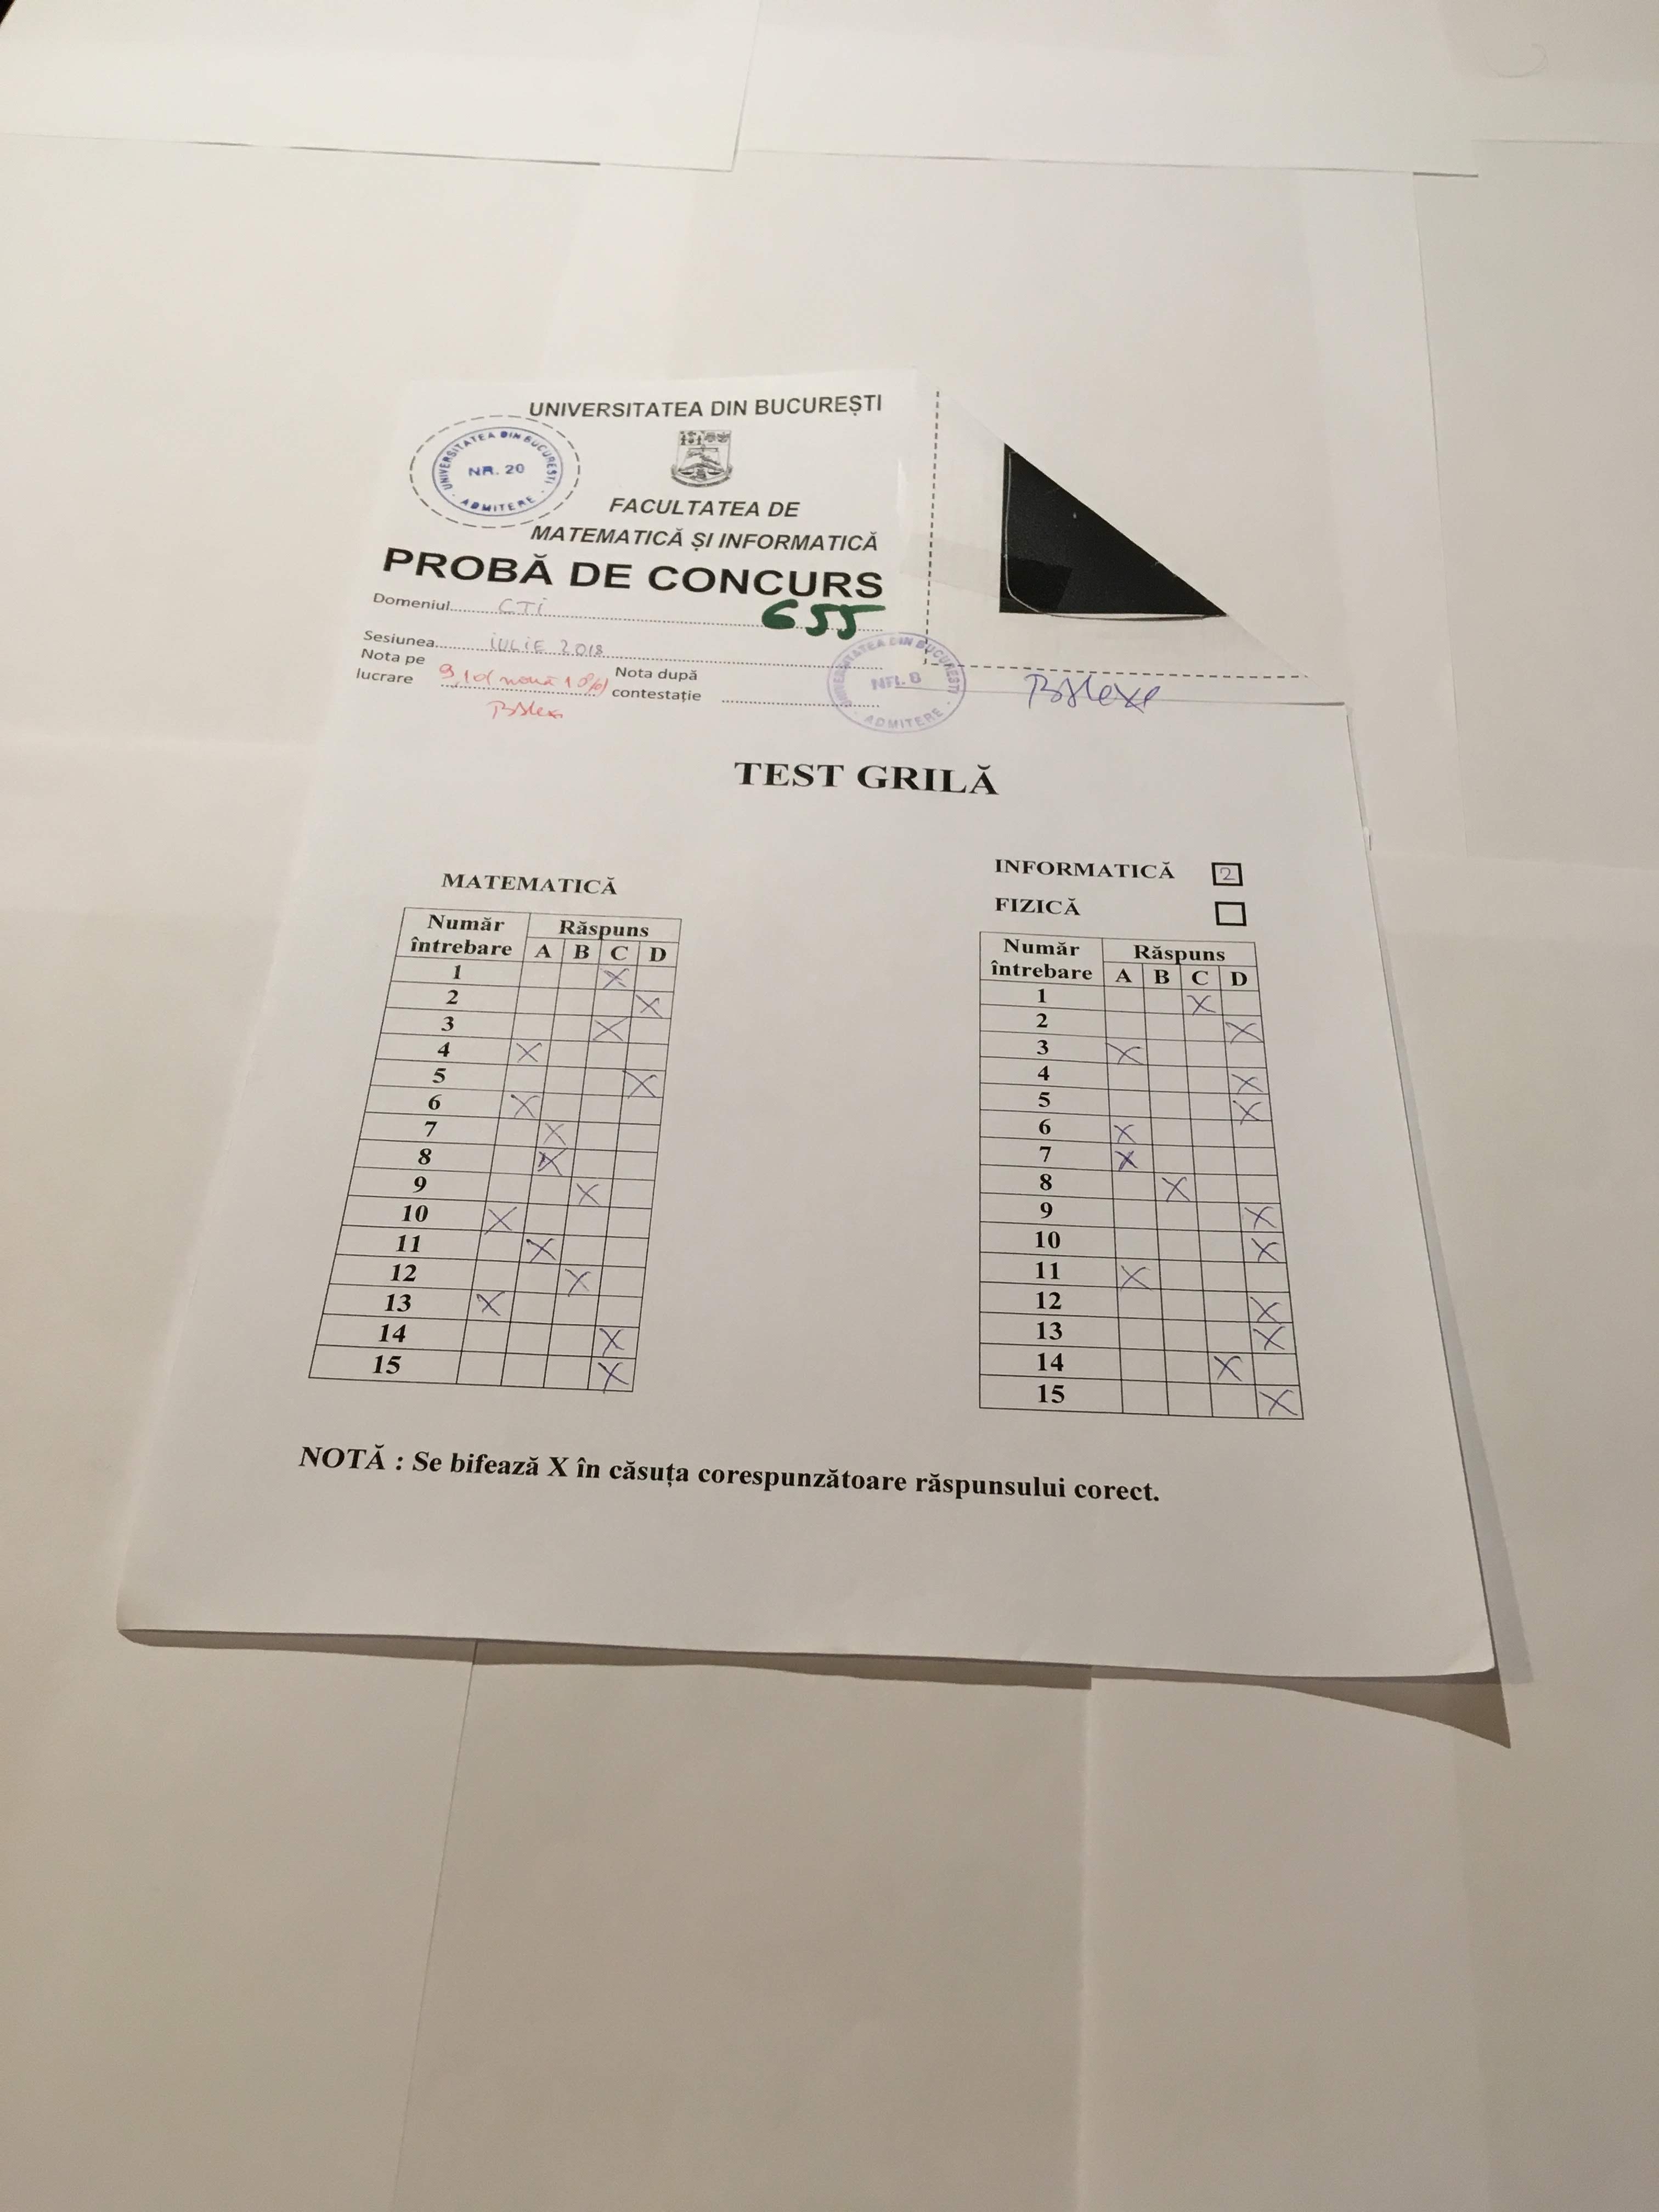 UNIVERSITATEA DIN BUCUREȘTI
UNIVERSITATEA DIN BUCUREȘTI
NR. 20
ADMITERE
FACULTATEA DE
MATEMATICĂ ȘI INFORMATICĂ
PROBĂ DE CONCURS
Domeniul CTI
655
Sesiunea IULIE 2018
Nota pe
lucrare 9,10 (nouă 10%)
Nota după
contestație
UNIVERSITATEA DIN BUCUREȘTI
ADMITERE
TEST GRILĂ
MATEMATICĂ
Număr întrebare Răspuns
A B C D
1 X
2 X
3 X
4 X
5 X
6 X
7 X
8 X
9 X
10 X
11 X
12 X
13 X
14 X
15 X
INFORMATICĂ 2
FIZICĂ
Număr întrebare Răspuns
A B C D
1 X
2 X
3 X
4 X
5 X
6 X
7 X
8 X
9 X
10 X
11 X
12 X
13 X
14 X
15 X
NOTĂ : Se bifează X în căsuța corespunzătoare răspunsului corect.